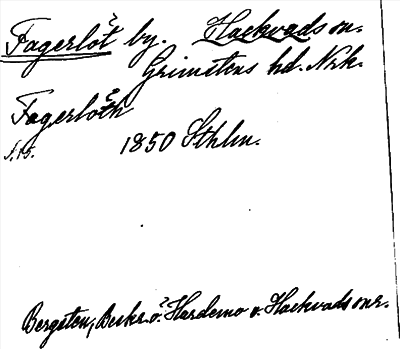 Fagerlöt by. Hackvads sn.
Grimstens hd. Nrk.
Fagerlöth
s. 15. 1850 Sthlm.
Bergsten, Beskr. ö. Hardemo o. Hackvads snr.